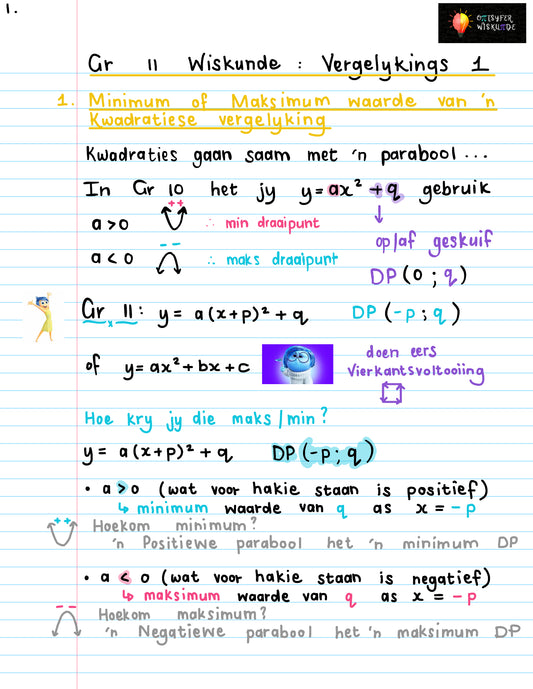 1.
ONTSYFER
WISKUNDE
Gr 11 Wiskunde : Vergelykings 1
1. Minimum of Maksimum waarde van 'n
Kwadratiese vergelyking
Kwadraties gaan saam met 'n parabool ...
In Gr 10 het jy y = ax² + q gebruik
a > 0 ++ ∴ min draaipunt
↓
op/af geskuif
a < 0 -- ∴ maks draaipunt
DP (0 ; q)
Gr 11 : y = a(x+p)² + q DP (-p ; q)
of y = ax² + bx + c doen eers
Vierkantsvoltooiing
Hoe kry jy die maks / min ?
y = a(x+p)² + q DP (-p ; q)
• a > 0 (wat voor hakie staan is positief)
↳ minimum waarde van q as x = -p
++ Hoekom minimum ?
'n Positiewe parabool het 'n minimum DP
• a < 0 (wat voor hakie staan is negatief)
↳ maksimum waarde van q as x = -p
-- Hoekom maksimum ?
'n Negatiewe parabool het 'n maksimum DP